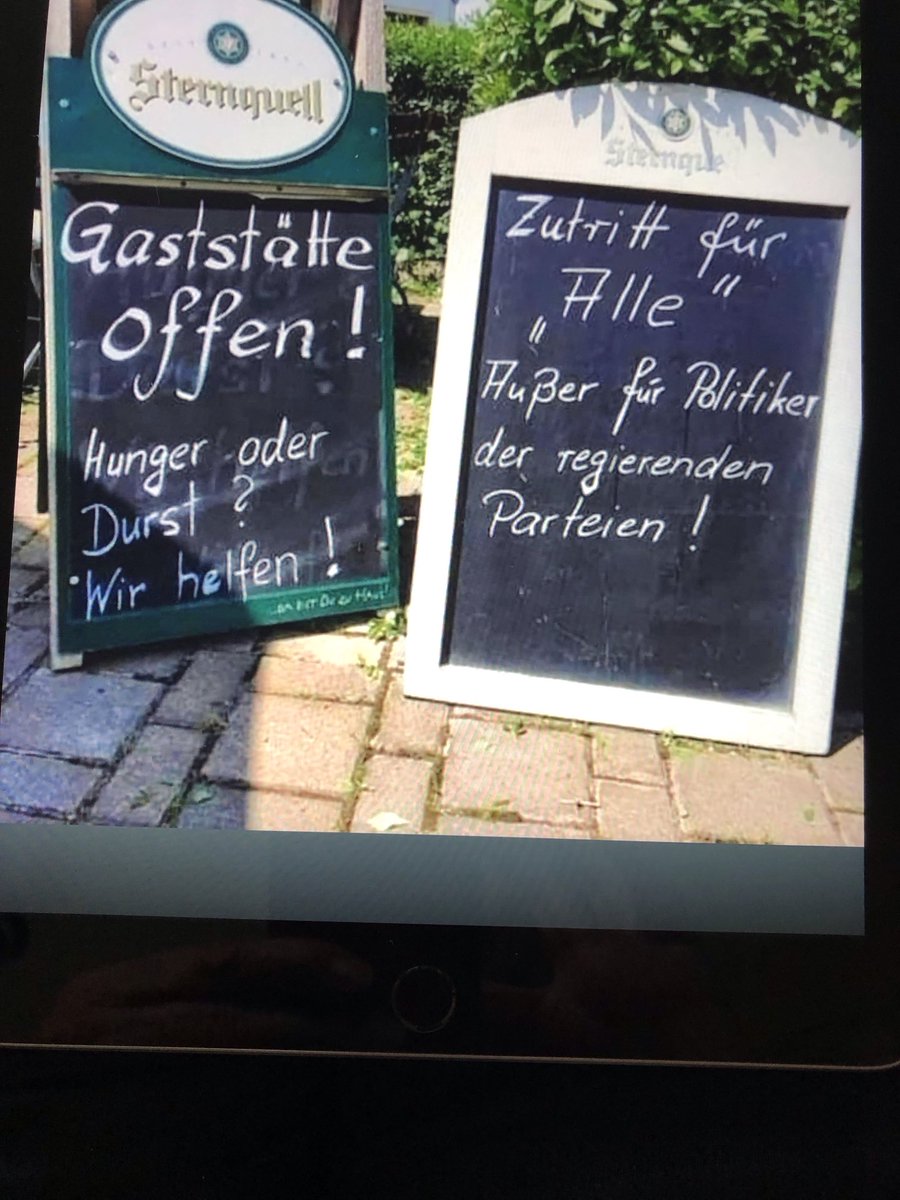 Sternquell
Gaststätte
offen!
Hunger oder
Durst?
Wir helfen!
...da bist Du zu Haus!
Sternque
Zutritt für
„Alle“
Außer für Politiker
der regierenden
Parteien!